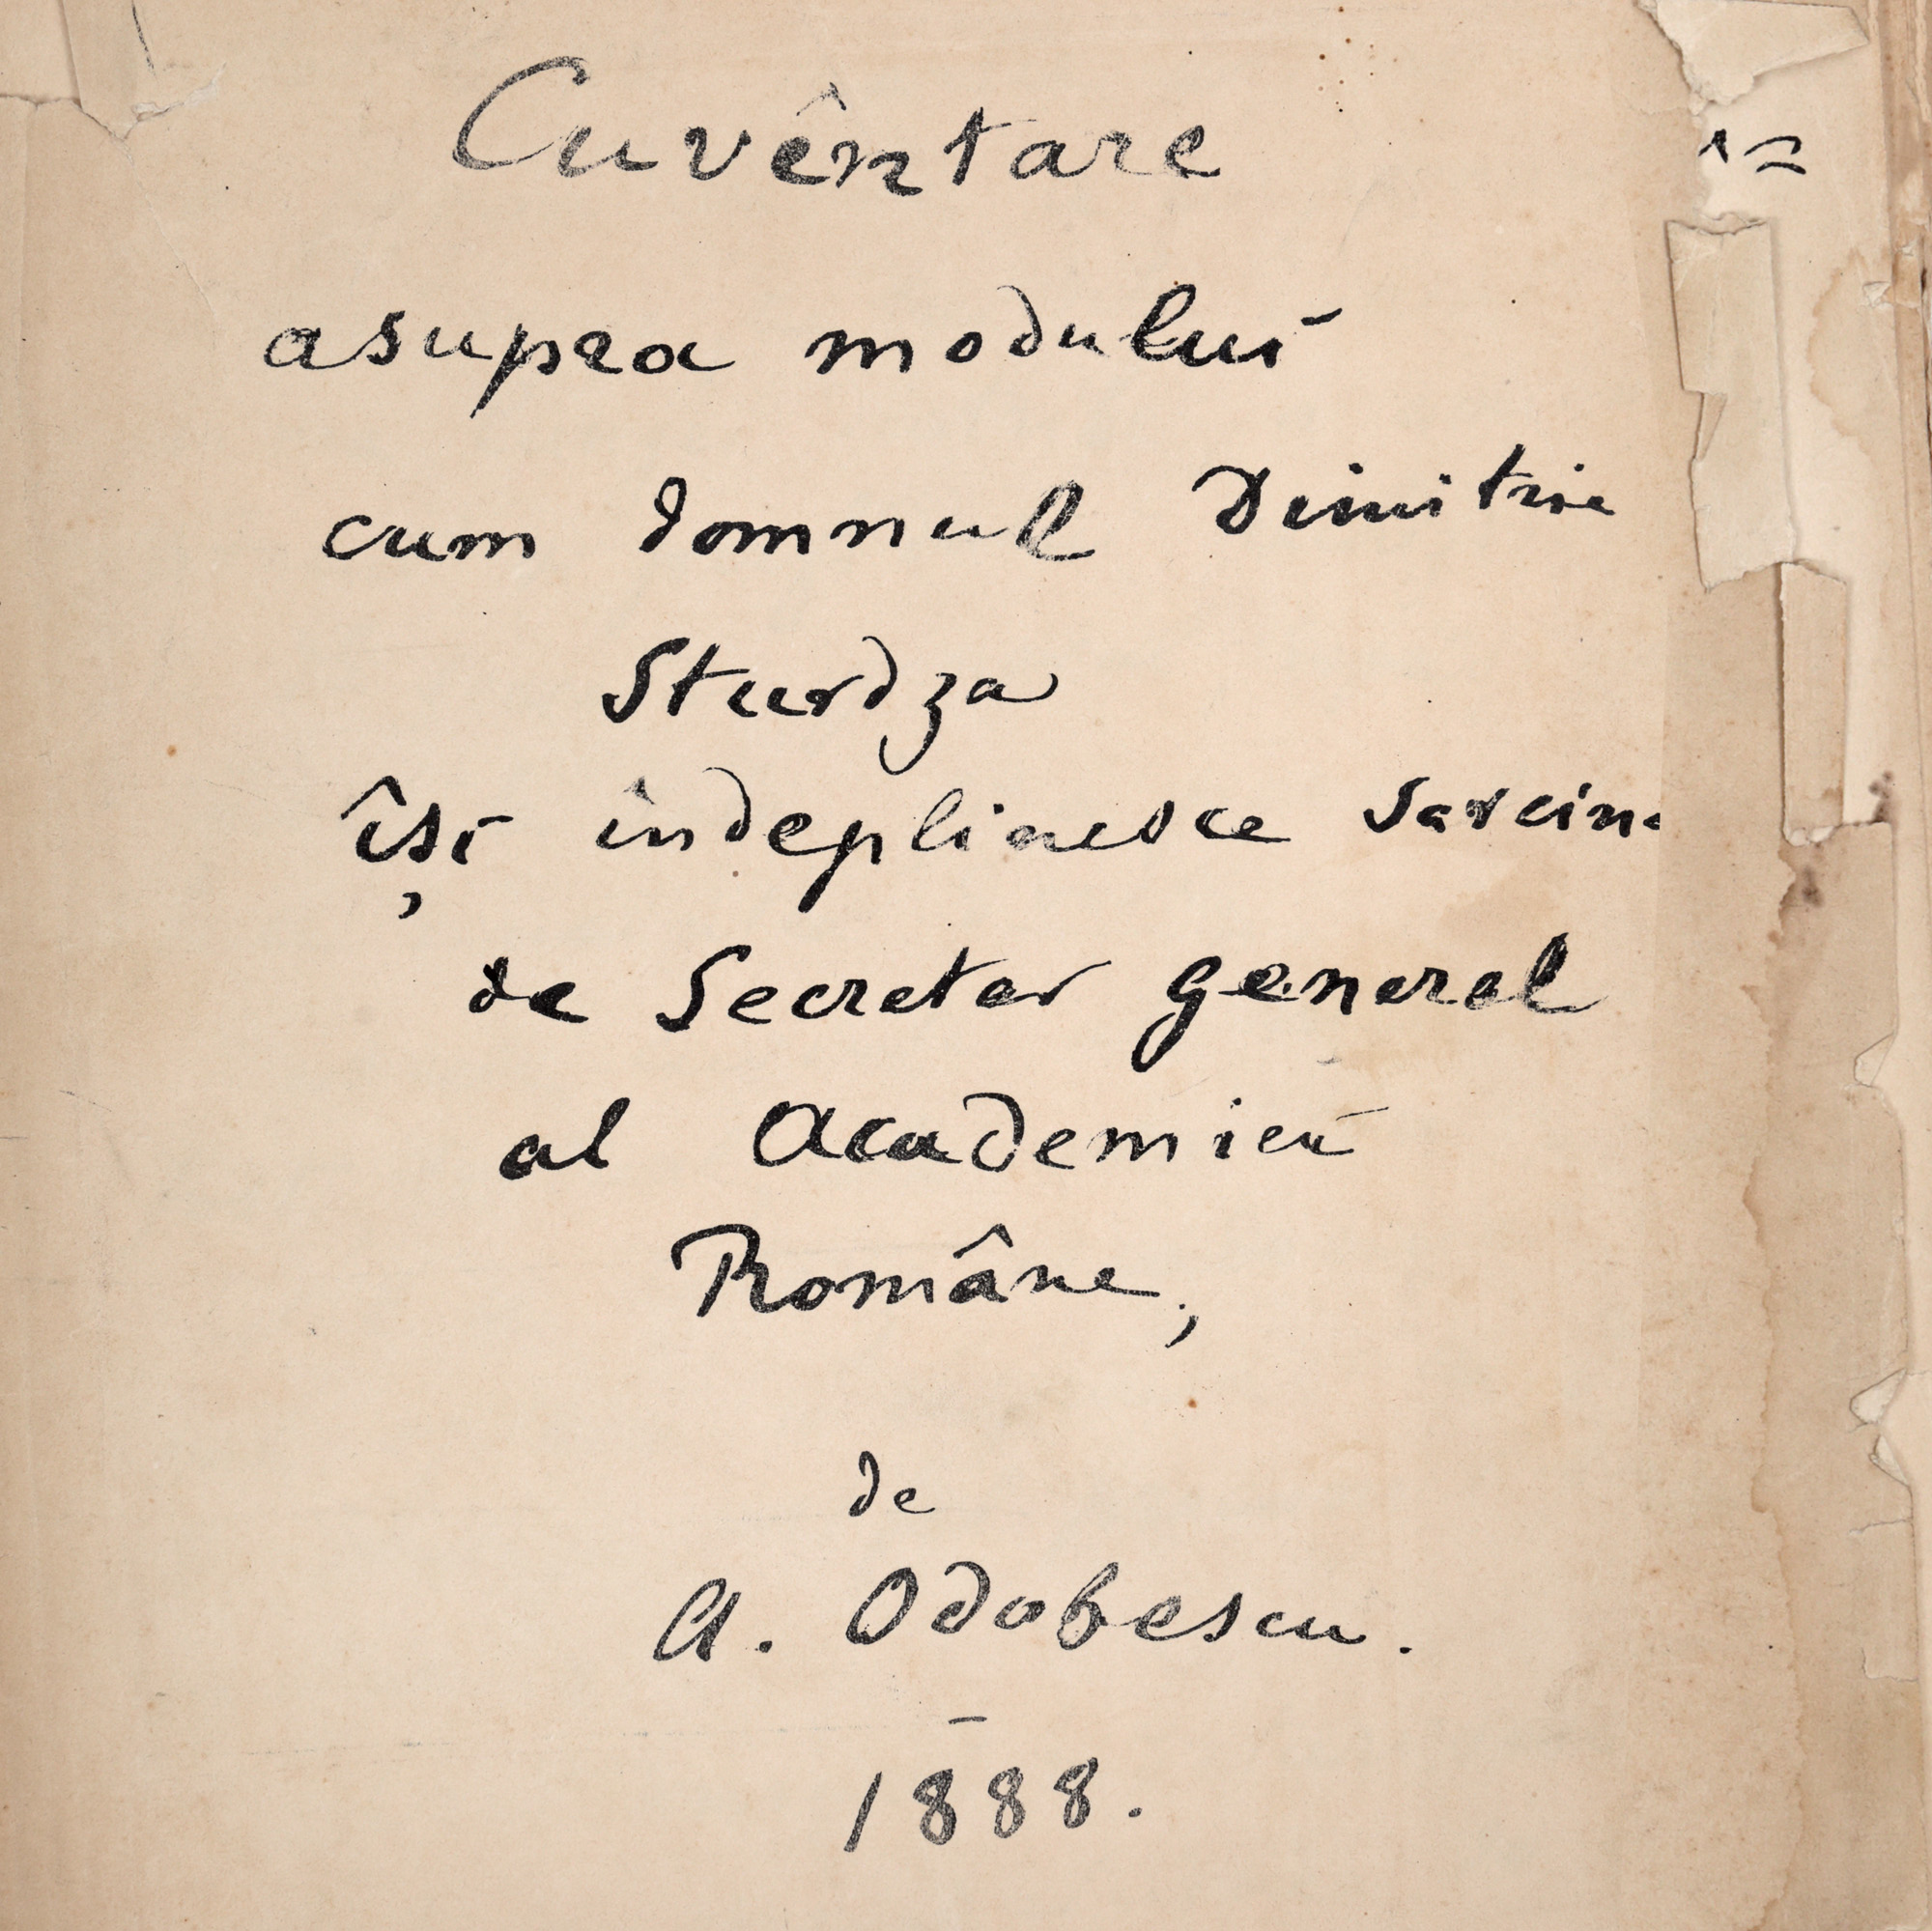 Cuvêntare
asupra moduluĭ
cum domnul Dimitrie
Sturdza
îșĭ îndeplinesce sarcina
de Secretar general
al Academieĭ
Române,
de
A. Odobescu.
–
1888.